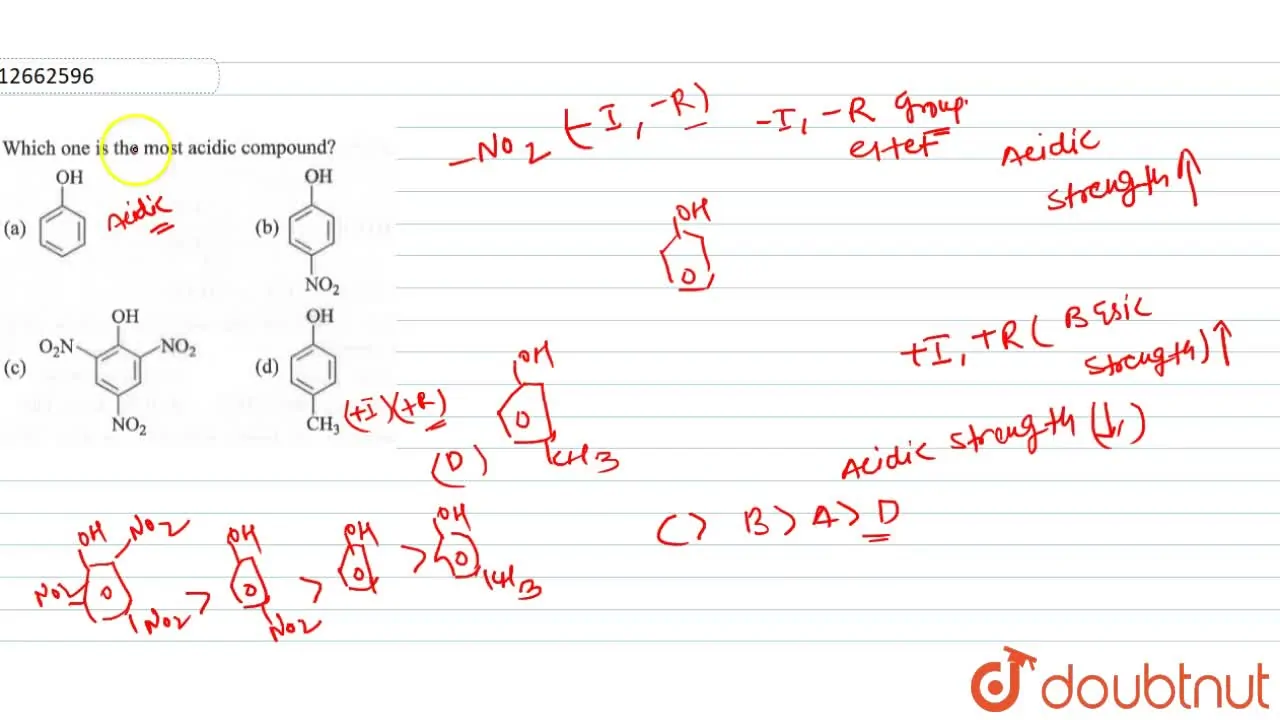 12662596
Which one is the most acidic compound?
(a)
OH
Acidic
(b)
OH
NO2
(c)
OH
O2N
NO2
NO2
(d)
OH
CH3
(+I)(+R)
(D)
-NO2 (-I, -R)
-I, -R Group
Acidic
Strength ↑
OH
+I, +R (Basic
Strength) ↑
OH
CH3
Acidic Strength (↓)
C > B > A > D
OH
NO2
NO2
NO2
>
OH
NO2
>
OH
>
OH
CH3
doubtnut